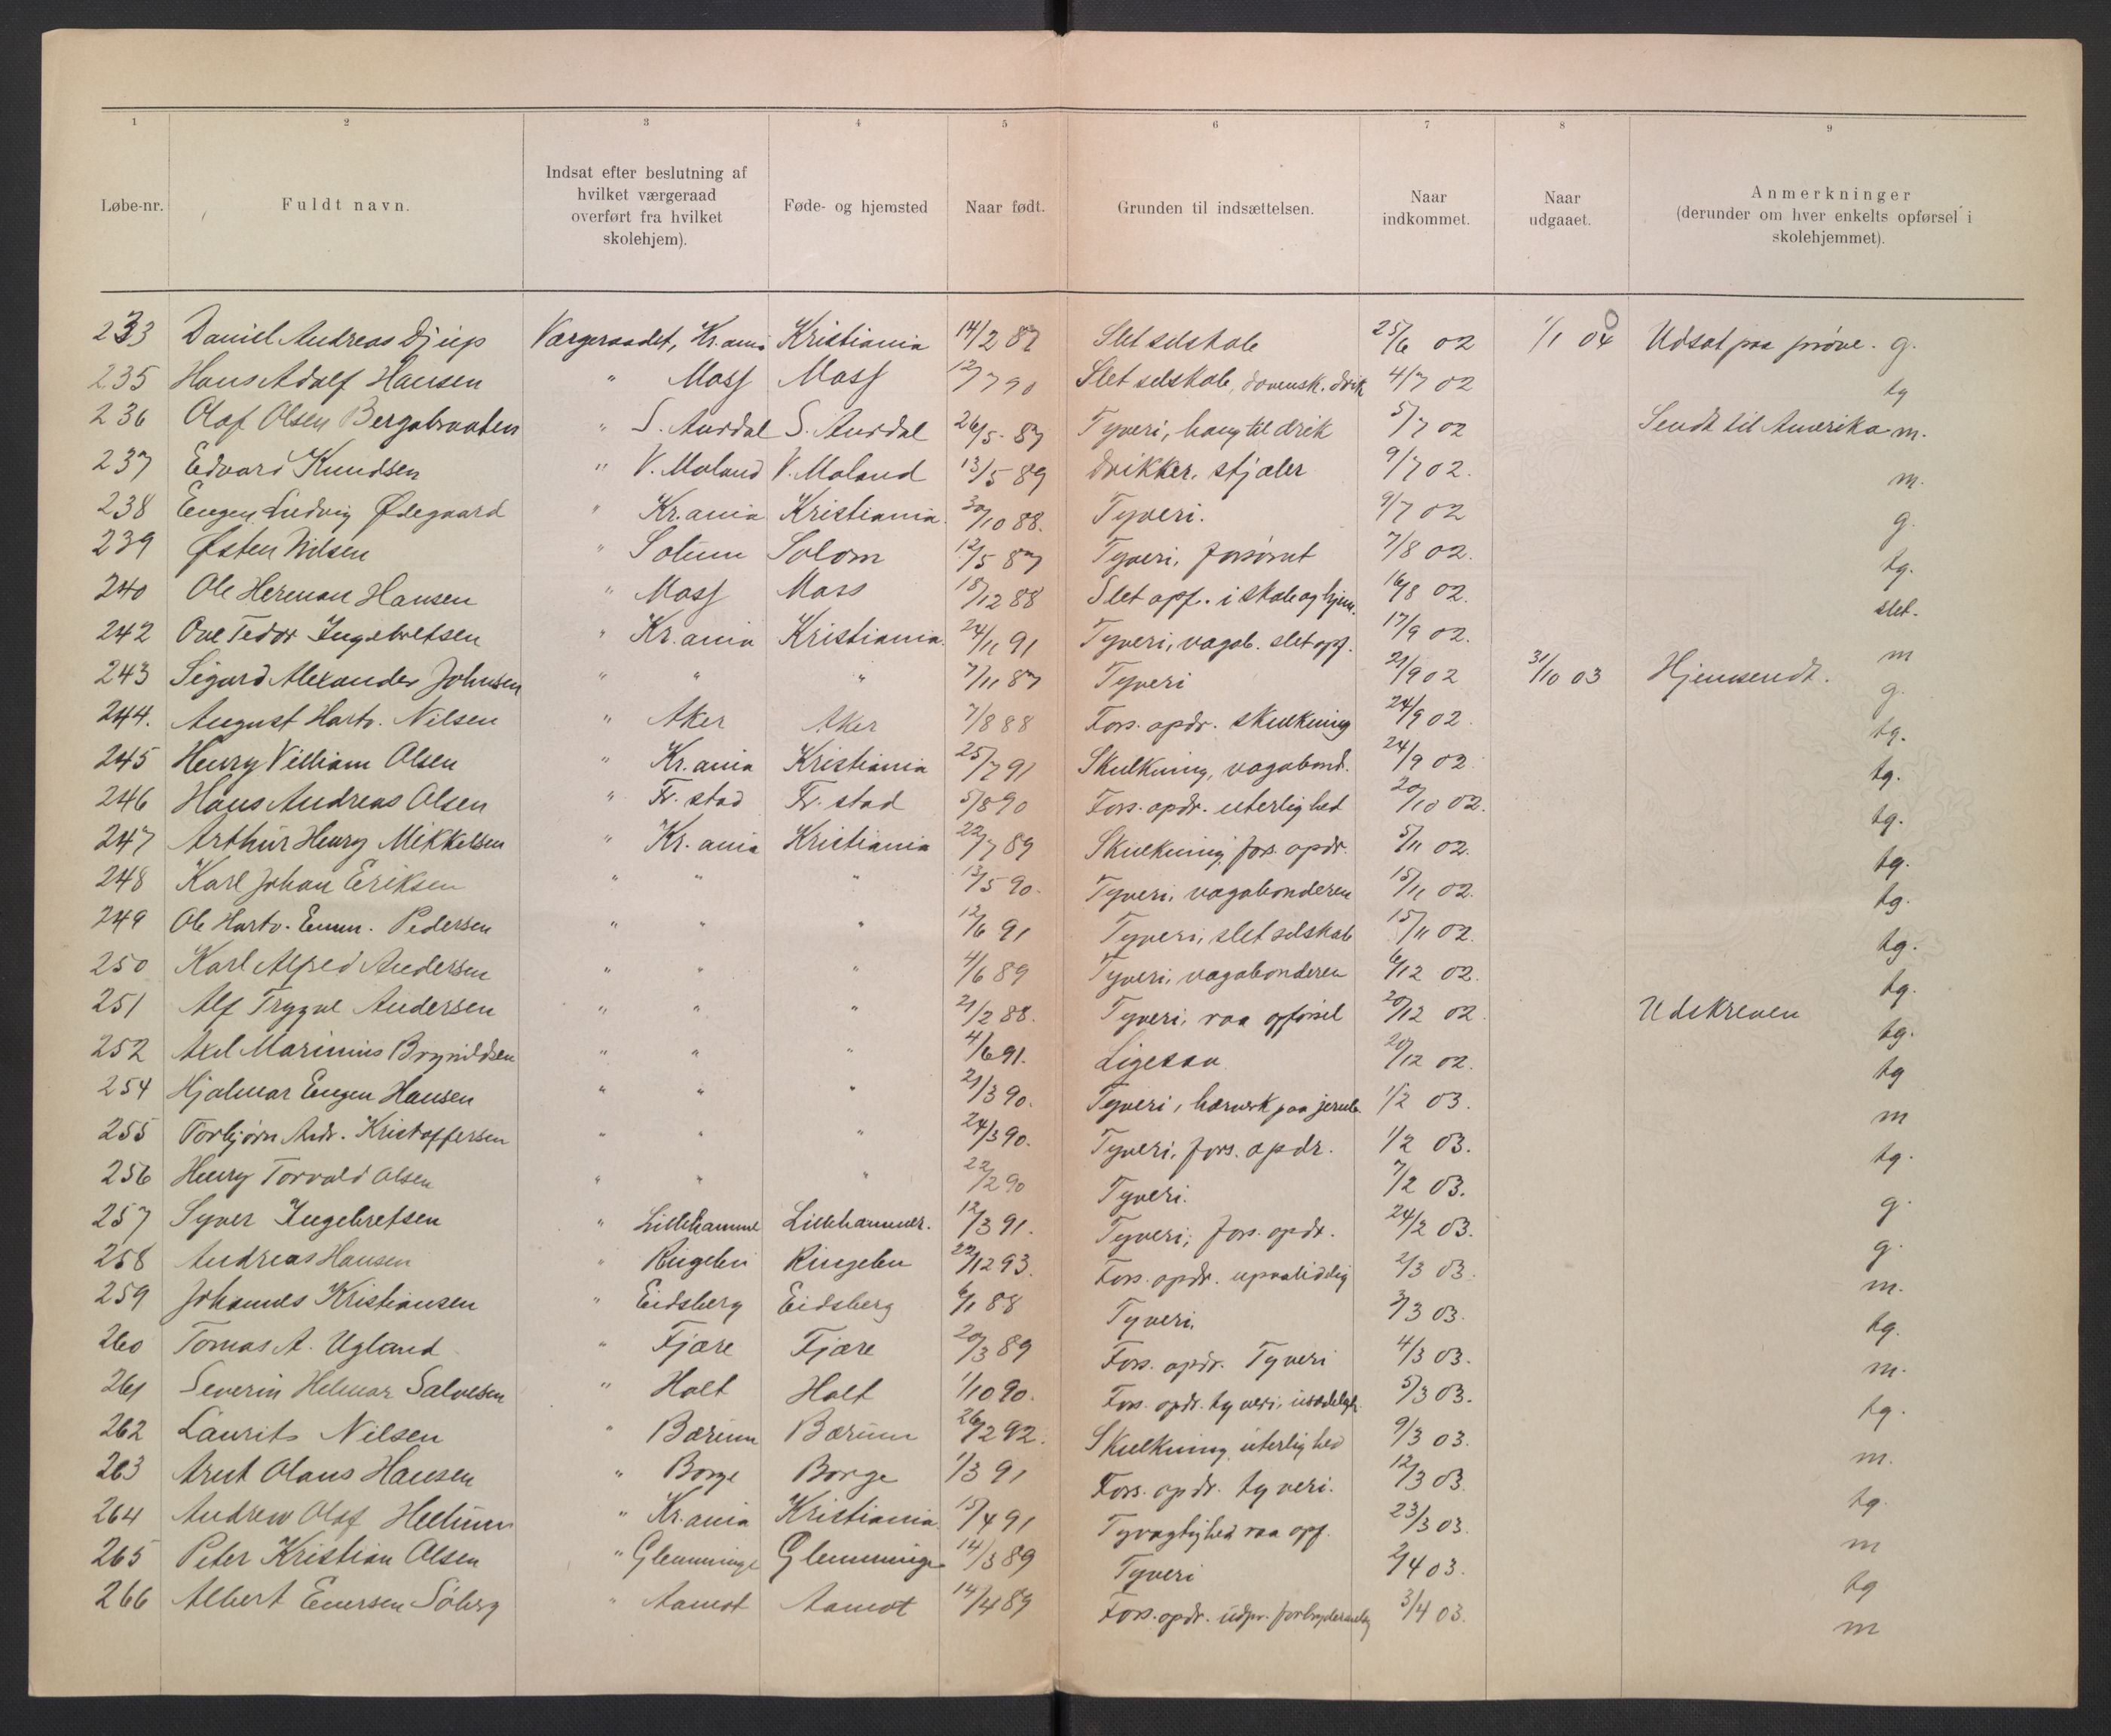 1 2 3 4 5 6 7 8 9
Løbe-nr. Fuldt navn. Indsat efter beslutning af hvilket værgeraad overført fra hvilket skolehjem). Føde- og hjemsted Naar født. Grunden til indsættelsen. Naar indkommet. Naar udgaaet. Anmerkninger (derunder om hver enkelts opførsel i skolehjemmet).
233 Daniel Andreas Djup Værgeraadet, Kr.ania Kristiania 14/2 87 Slet selskab 25/6 02 1/1 04 Udsat paa prøve. g.
235 Hans Adolf Hansen " Moss Moss 12/7 90 Slet selskab, dovensk. drik 4/7 02 tg
236 Olaf Olsen Bergabraaten " S. Aurdal S. Aurdal 26/5 87 Tyveri, hang til drik 5/7 02 Sendt til Amerika m.
237 Edvard Knudsen " V. Moland V. Moland 13/5 89 drikker, stjæler 9/7 02. m.
238 Eugen Ludvig Ødegaard " Kr.ania Kristiania. 30/10 88. Tyveri. 9/7 02 g.
239 Østen Nilsen " Solum Solum 12/5 87 Tyveri, forsømt 7/8 02. tg.
240 Ole Herman Hansen " Moss Moss 18/12 88 Slet opf. i skole og hjem. 16/8 02. slet.
242 Ove Tedor Ingebretsen " Kr.ania Kristiania. 24/11 91 Tyveri, vagab. slet opf. 17/9 02. m
243 Sigurd Alexander Johnsen " " " 7/11 87 Tyveri 21/9 02 31/10 03 Hjemsendt. g.
244. August Hartv. Nilsen " Aker Aker 7/8 88 Fors. opdr. skulkning 24/9 02. tg.
245 Henry Villiam Olsen " Kr.ania Kristiania 25/7 91 Skulkning, vagabond. 24/9 02 tg.
246 Hans Andreas Olsen " Fr. stad Fr. stad 5/8 90 Fors. opdr. uterlighed 20/10 02. tg.
247 Arthur Henry Mikkelsen " Kr. ania Kristiania 22/7 89 Skulkning, fors. opdr. 5/11 02. tg.
248 Karl Johan Eriksen " " " 13/5 90. Tyveri, vagabonderen 15/11 02. tg.
249 Ole Hartv. Emm. Pedersen " " " 12/6 91 Tyveri, slet selskab 15/11 02. tg.
250 Karl Alfred Andersen " " " 4/6 89 Tyveri, vagabonderen 6/12 02. tg.
251 Alf Trygve Andersen " " " 21/2 88. Tyveri, raa opførsel 20/12 02. Udskreven tg.
252 Axel Marinius Brynildsen " " " 4/6 91. Ligesaa 20/12 02. tg
254 Hjalmar Eugen Hansen " " " 21/3 90. Tyveri, hærverk paa jernb. 1/2 03. m
255 Torbjørn Andr. Kristoffersen " " " 24/3 90. Tyveri, fors. opdr. 1/2 03. tg.
256 Henry Torvald Olsen " " " 22/2 90 Tyveri. 7/2 03. g.
257 Syver Ingebretsen " Lillehammer Lillehammer. 12/3 91. Tyveri; fors. opdr. 24/2 03. g.
258 Andreas Hansen " Ringebu Ringebu 22/12 93. Fors. opdr. upaalidelig 2/3 03. m.
259 Johannes Kristiansen " Eidsberg Eidsberg 6/1 88 Tyveri. 3/3 03. tg.
260 Tomas A. Ugland " Fjære Fjære 20/3 89 Fors. opdr. Tyveri 4/3 03. m.
261 Severin Helmar Salvesen " Holt Holt 1/10 90. Fors. opdr. tyveri, usædeligh. 5/3 03. tg.
262 Laurits Nilsen " Bærum Bærum 26/2 92. Skulkning, uterlighed 9/3 03. m.
263 Arnt Olaus Hansen " Borge Borge 1/3 91 Fors. opdr. tyveri. 12/3 03. tg.
264 Andrew Olaf Hellum " Kr.ania Kristiania. 15/4 91 Tyvagtighed raa opf. 23/3 03. m
265 Peter Kristian Olsen " Glemminge Glemminge 14/3 89 Tyveri 2/4 03. tg
266 Albert Enersen Søberg " Aamot Aamot 14/4 89 Fors. opdr. udpr. forbryderanlæg 3/4 03. m